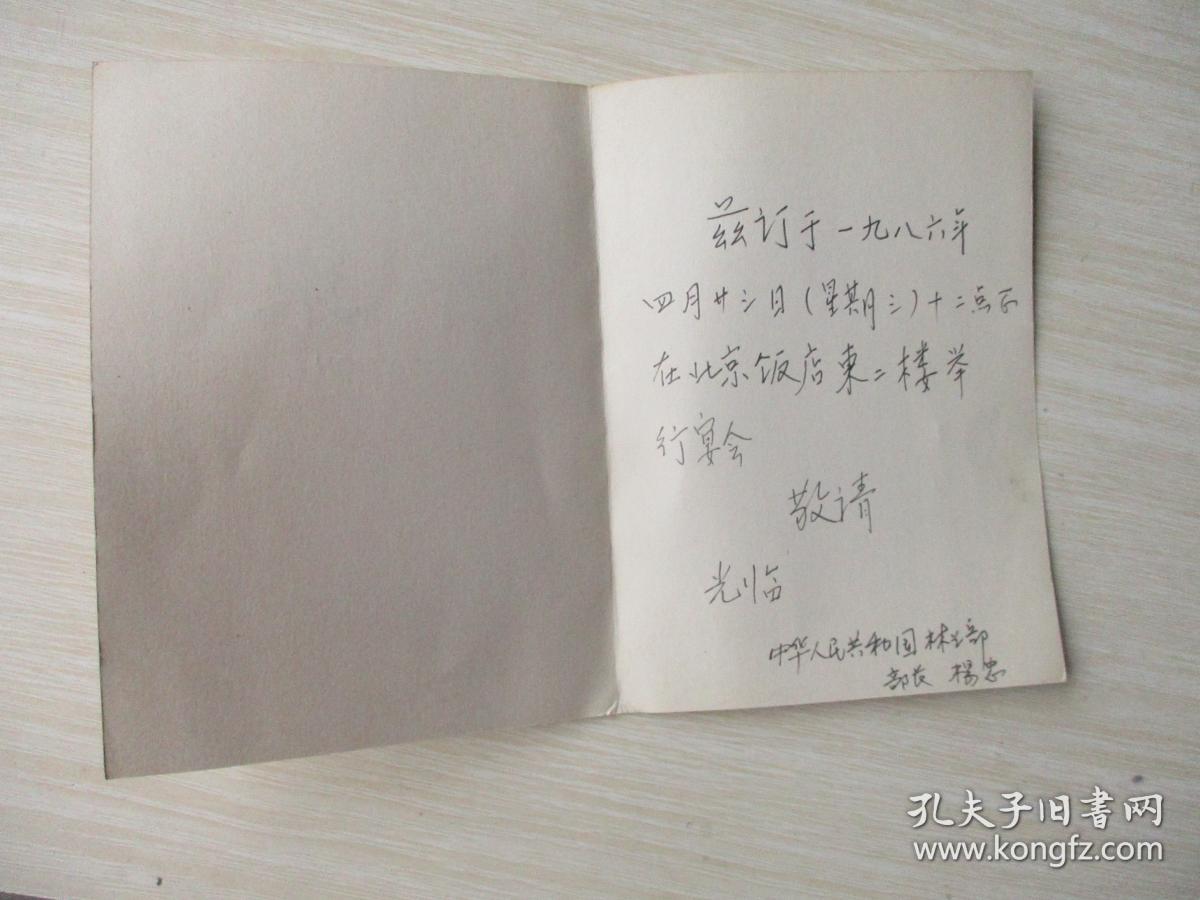 兹订于一九八六年
四月廿三日(星期三)十二点正
在北京饭店東二楼举
行宴会
敬请
光临
中华人民共和国林业部
部长 杨忠
孔夫子旧書网
www.kongfz.com